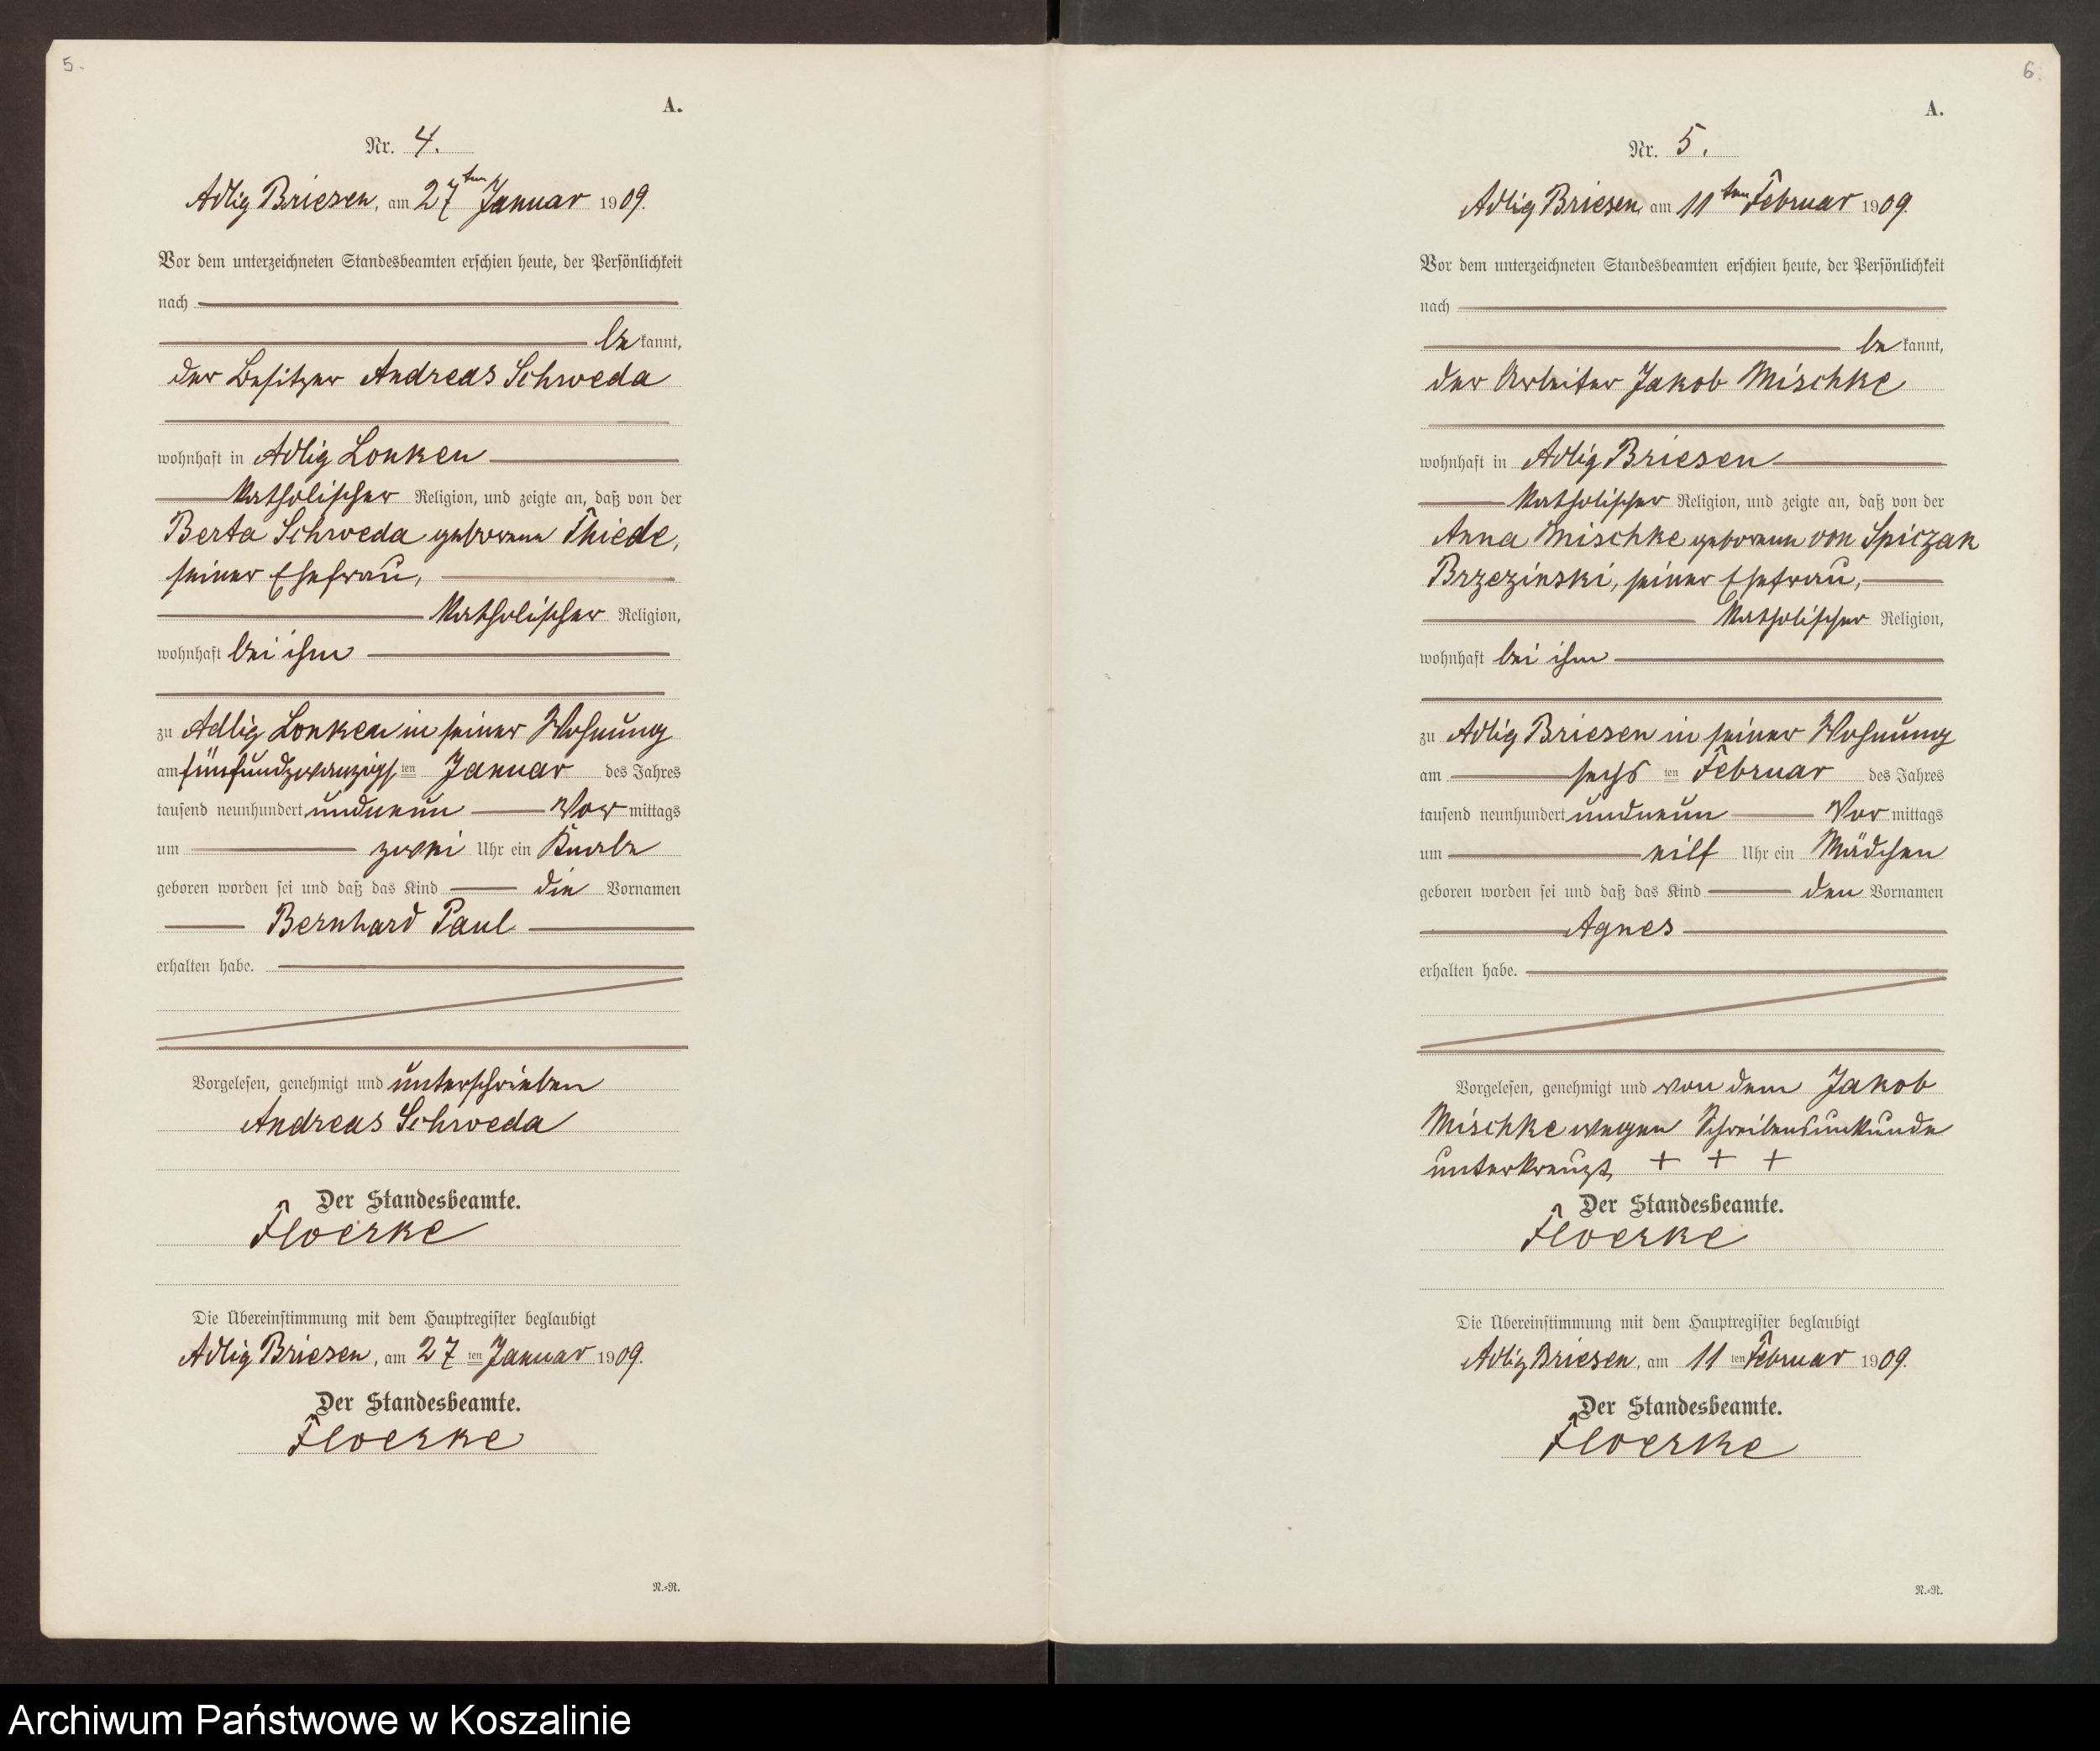 5.
A.
Nr. 4.
Adlig Briesen, am 27ten Januar 1909.
Vor dem unterzeichneten Standesbeamten erschien heute, der Persönlichkeit
nach
be kannt,
der Besitzer Andreas Schweda
wohnhaft in Adlig Lonken
katholischer Religion, und zeigte an, daß von der
Berta Schweda geborene Thiede,
seiner Ehefrau,
katholischer Religion,
wohnhaft bei ihm
zu Adlig Lonken in seiner Wohnung
am fünfundzwanzigsten Januar des Jahres
tausend neunhundert undneun Vor mittags
um zwei Uhr ein Knabe
geboren worden sei und daß das Kind die Vornamen
Bernhard Paul
erhalten habe.
Vorgelesen, genehmigt und unterschrieben
Andreas Schweda
Der Standesbeamte.
Floerke
Die Übereinstimmung mit dem Hauptregister beglaubigt
Adlig Briesen, am 27 ten Januar 1909.
Der Standesbeamte.
Floerke
N.-N.
6.
A.
Nr. 5.
Adlig Briesen, am 11ten Februar 1909.
Vor dem unterzeichneten Standesbeamten erschien heute, der Persönlichkeit
nach
be kannt,
der Arbeiter Jakob Mischke
wohnhaft in Adlig Briesen
katholischer Religion, und zeigte an, daß von der
Anna Mischke geborene von Spiczak
Brzezinski, seiner Ehefrau,
katholischer Religion,
wohnhaft bei ihm
zu Adlig Briesen in seiner Wohnung
am sechs ten Februar des Jahres
tausend neunhundert undneun Vor mittags
um eilf Uhr ein Mädchen
geboren worden sei und daß das Kind den Vornamen
Agnes
erhalten habe.
Vorgelesen, genehmigt und von dem Jakob
Mischke wegen Schreibensunkunde
unterkreuzt + + +
Der Standesbeamte.
Floerke
Die Übereinstimmung mit dem Hauptregister beglaubigt
Adlig Briesen, am 11 ten Februar 1909.
Der Standesbeamte.
Floerke
N.-N.
Archiwum Państwowe w Koszalinie